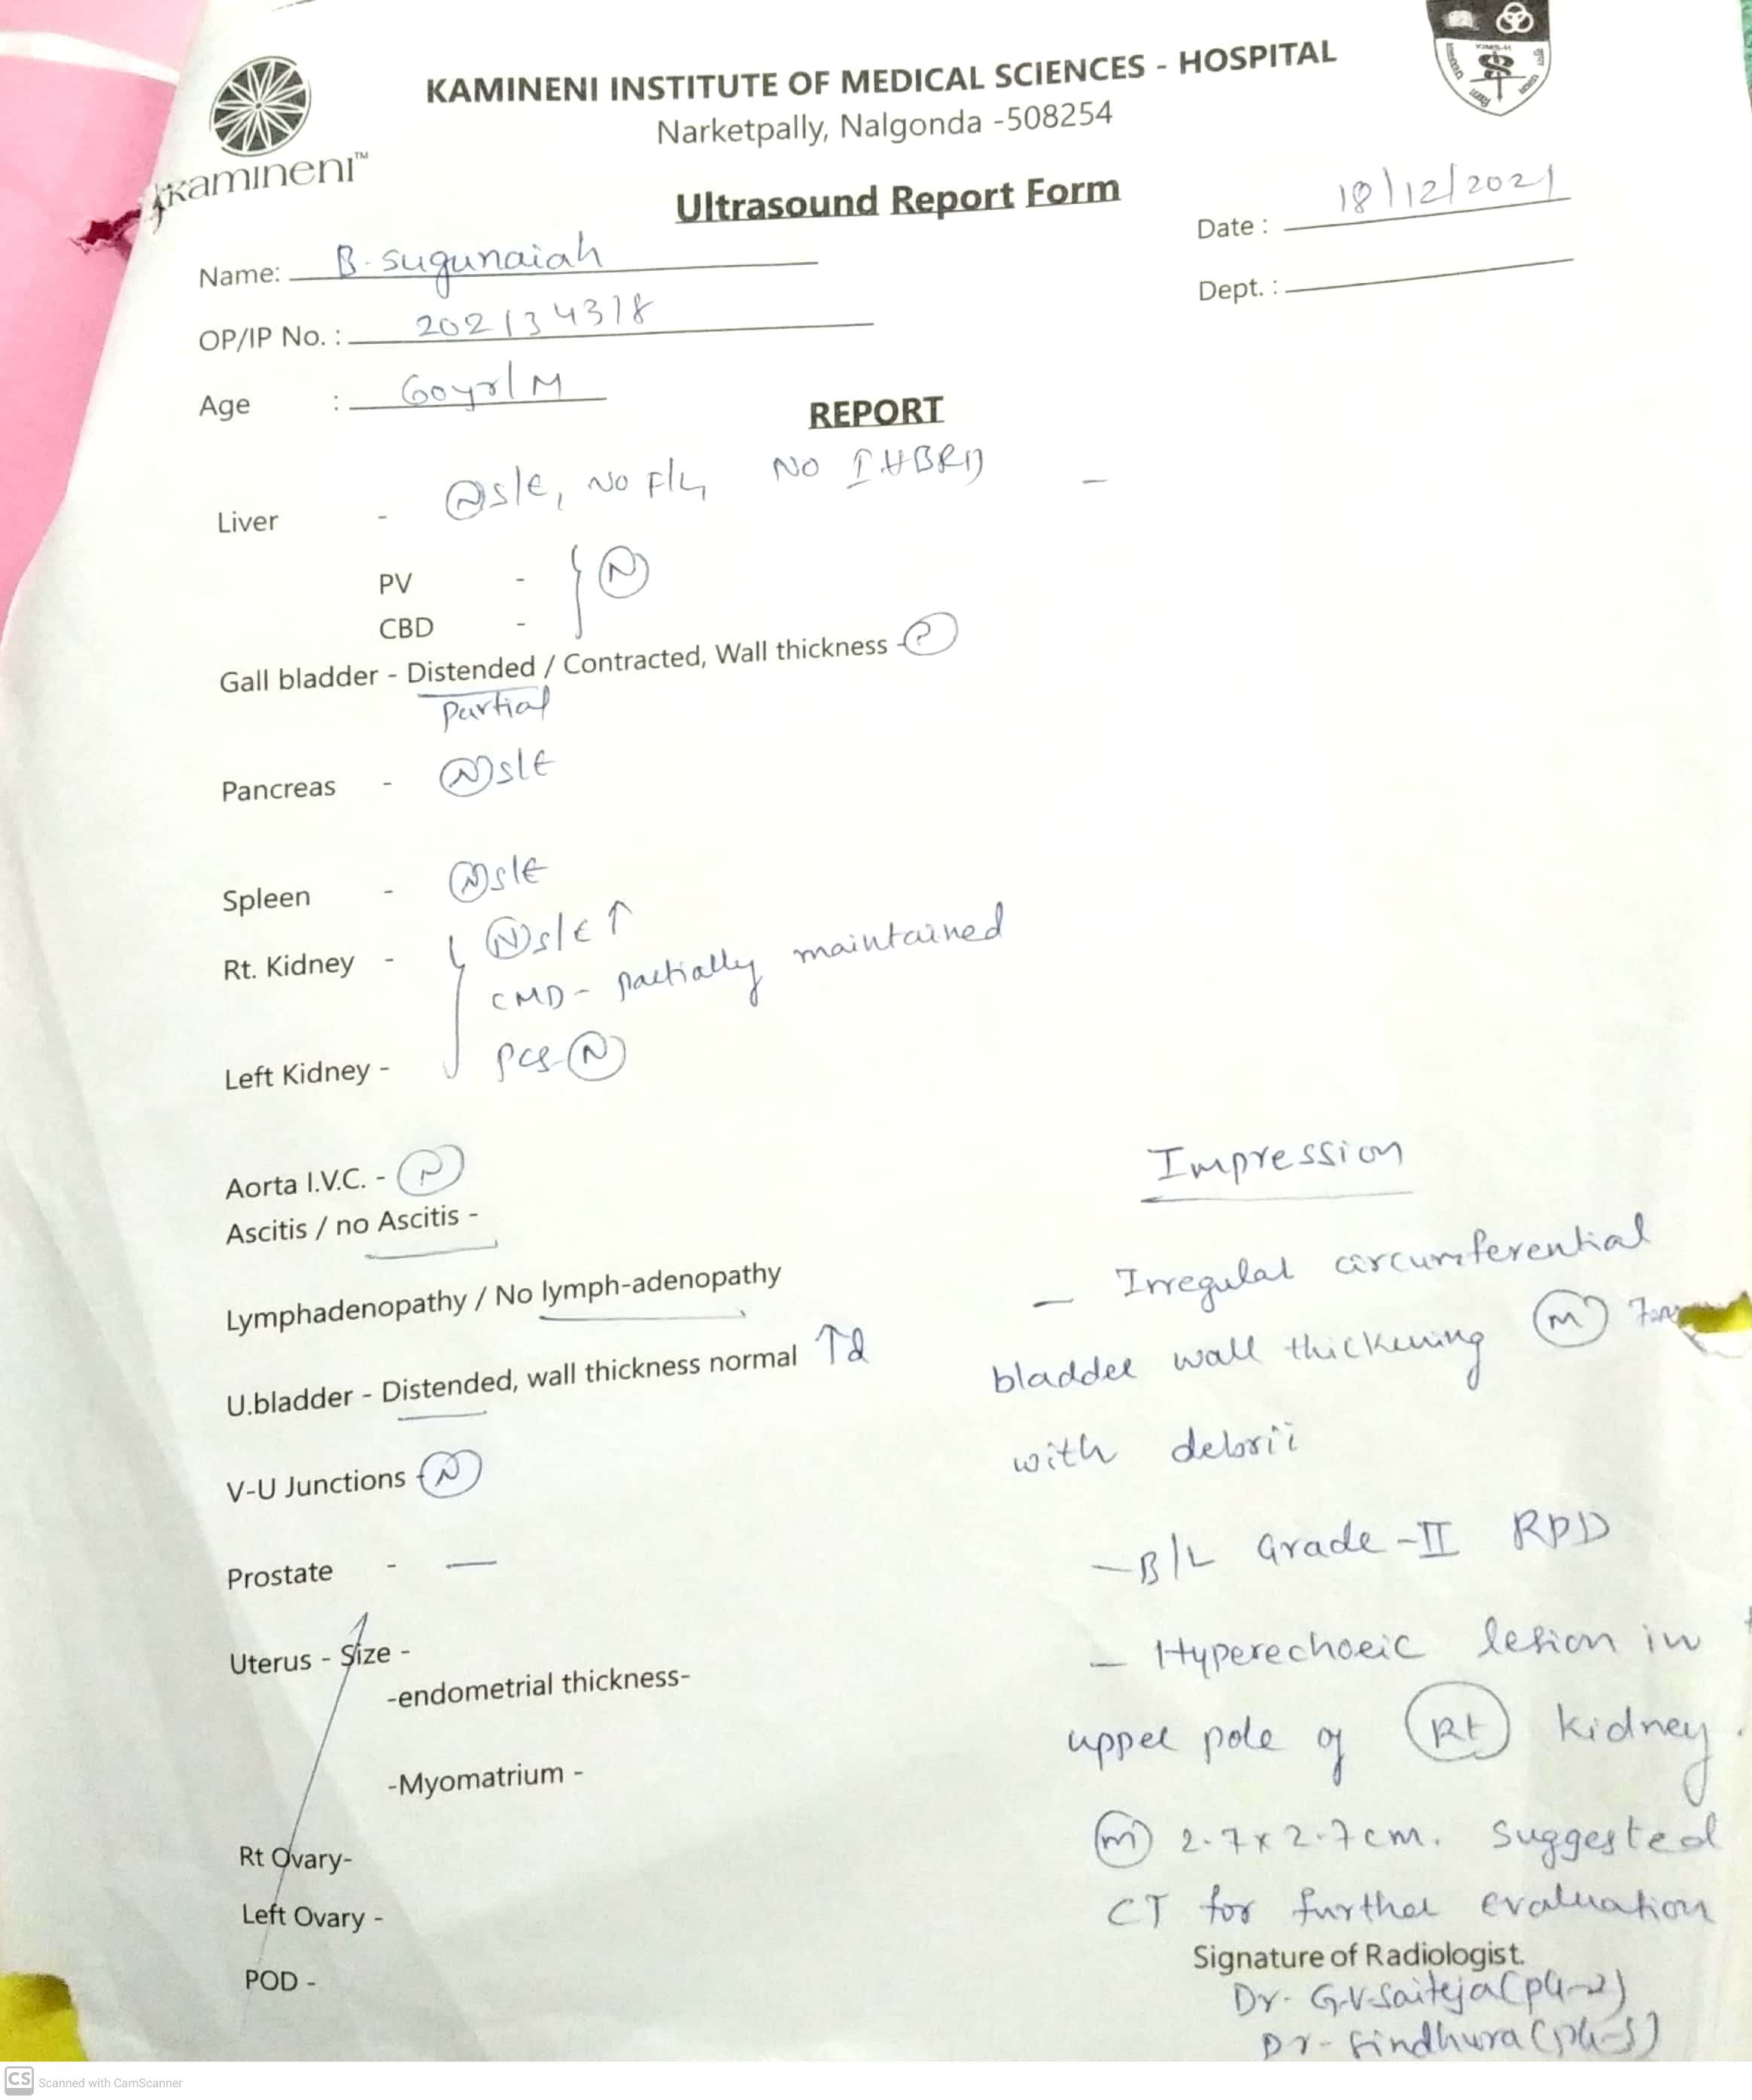 KAMINENI INSTITUTE OF MEDICAL SCIENCES - HOSPITAL
Narketpally, Nalgonda -508254
kamineni™
Ultrasound Report Form
Date : 18/12/2021
Name: B. sugunaiah
Dept. :
OP/IP No. : 202134318
Age : 60yrs/M
REPORT
Liver - Ⓝ s/E, NO F/L, NO IHBRD -
PV - } Ⓝ
CBD -
Gall bladder - Distended / Contracted, Wall thickness -
Partial
Pancreas - Ⓝ s/E
Spleen - Ⓝ s/E
Rt. Kidney - { Ⓝ s/E ↑
CMD - partially maintained
Left Kidney - PCS - Ⓝ
Aorta I.V.C. - Ⓝ
Ascitis / no Ascitis -
Lymphadenopathy / No lymph-adenopathy
U.bladder - Distended, wall thickness normal
V-U Junctions - Ⓝ
Prostate - —
Uterus - Size -
-endometrial thickness-
-Myomatrium -
Rt Ovary-
Left Ovary -
POD -
Impression
— Irregular circumferential
bladder wall thickening ⓜ
with debrii
— B/L Grade - II RPD
— Hyperechoeic lesion in
upper pole of Rt kidney.
ⓜ 2.7 x 2.7 cm. suggested
CT for further evaluation
Signature of Radiologist.
Dr. G.V. Saiteja (PG-2)
Dr. Sindhura (PG-3)
CS Scanned with CamScanner